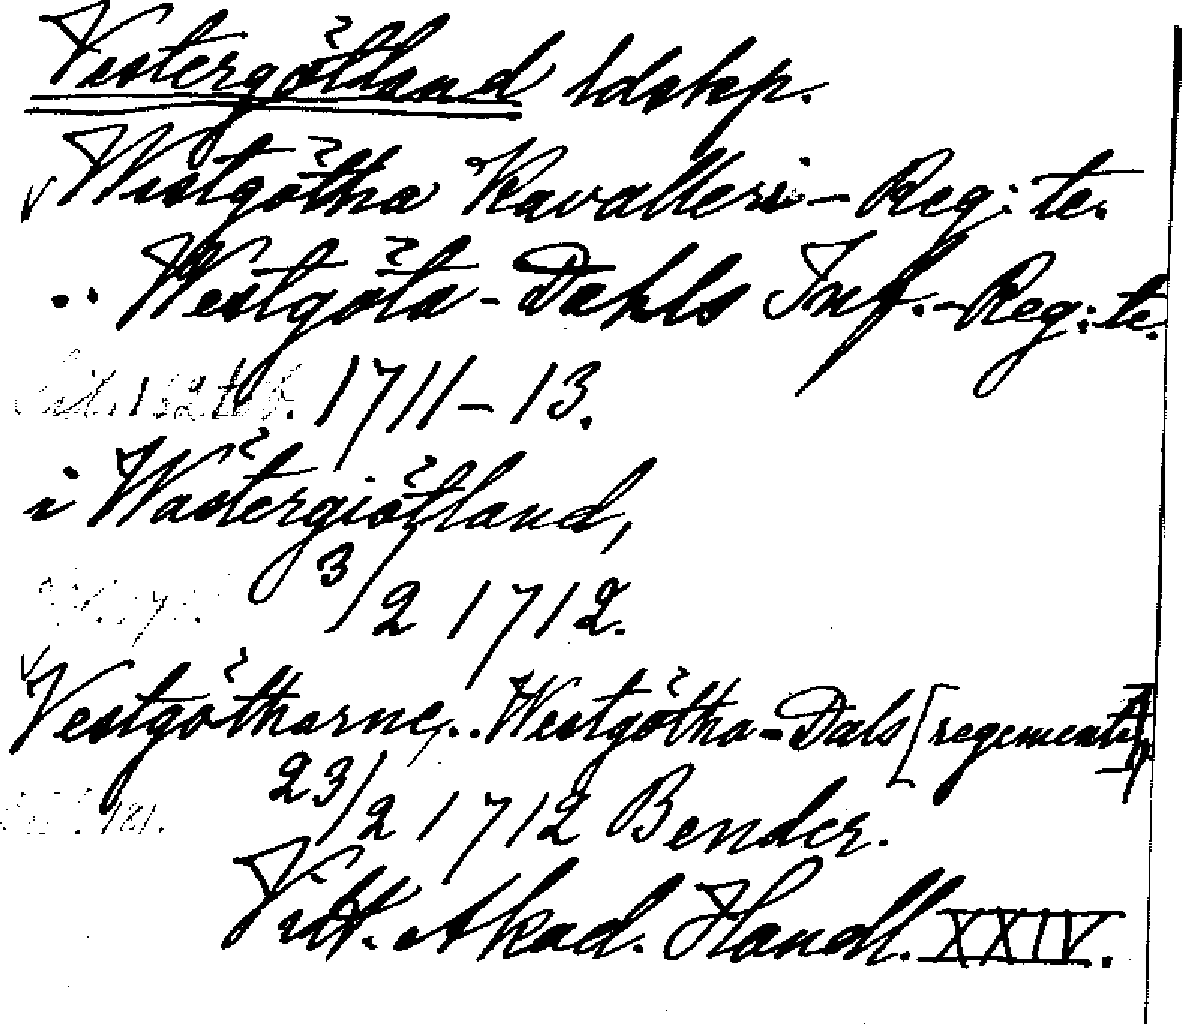 Västergötland ldskp.
Westgötha Kavalleri-Reg:te.
.. Westgöta-Dahls Inf.-Reg:te.
1711-13.
i Wästergiötland,
3/2 1712.
Vestgötharne, .. Westgötha-Dals [regemente],
23/2 1712 Bender.
Vitt. Akad. Handl. XXIV.